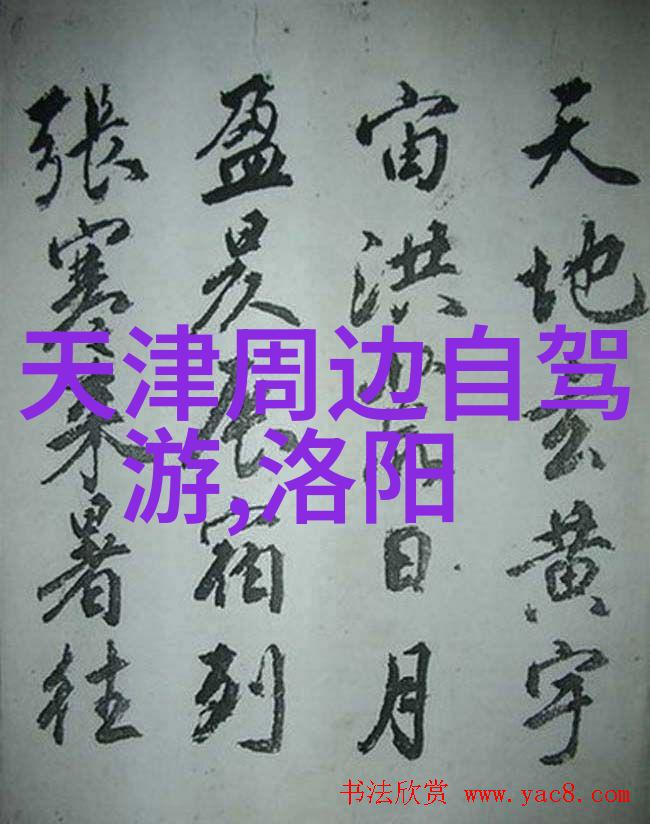 天地玄黄宇
宙洪荒日月
盈昃辰宿列
張寒来暑往
天津周边自驾
游,洛阳
书法欣赏 www.yac8.com